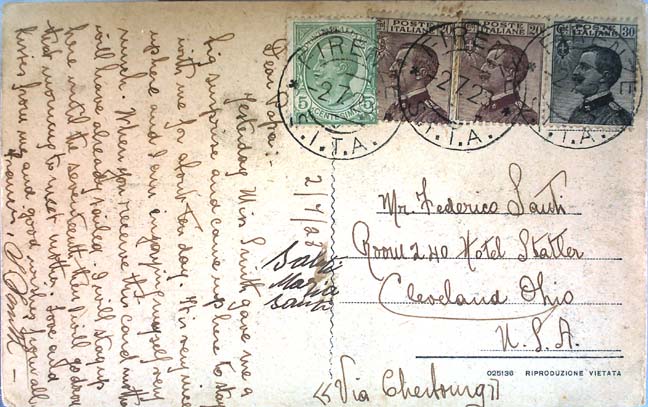 Yesterday Miss Smith gave me a
big surprise and came up here to stay
with me for about ten day. It is very nice
up here and I am enjoying myself very
much. When you receive this card mother
will have already sailed. I will stay up
here until the seventeenth then I will go down
that morning to meet mother. Love and
kisses from me and good wishes from all
2/7/28
POSTE ITALIANE
20
POSTE ITALIANE
20
30
5 CENTESIMI 5
FIRENZE
2.7.2
I.T.A.
Mr. Federico Santi
Room 240 Hotel Statler
Cleveland Ohio
U.S.A.
025136 RIPRODUZIONE VIETATA
Via Cherbourg
Maria